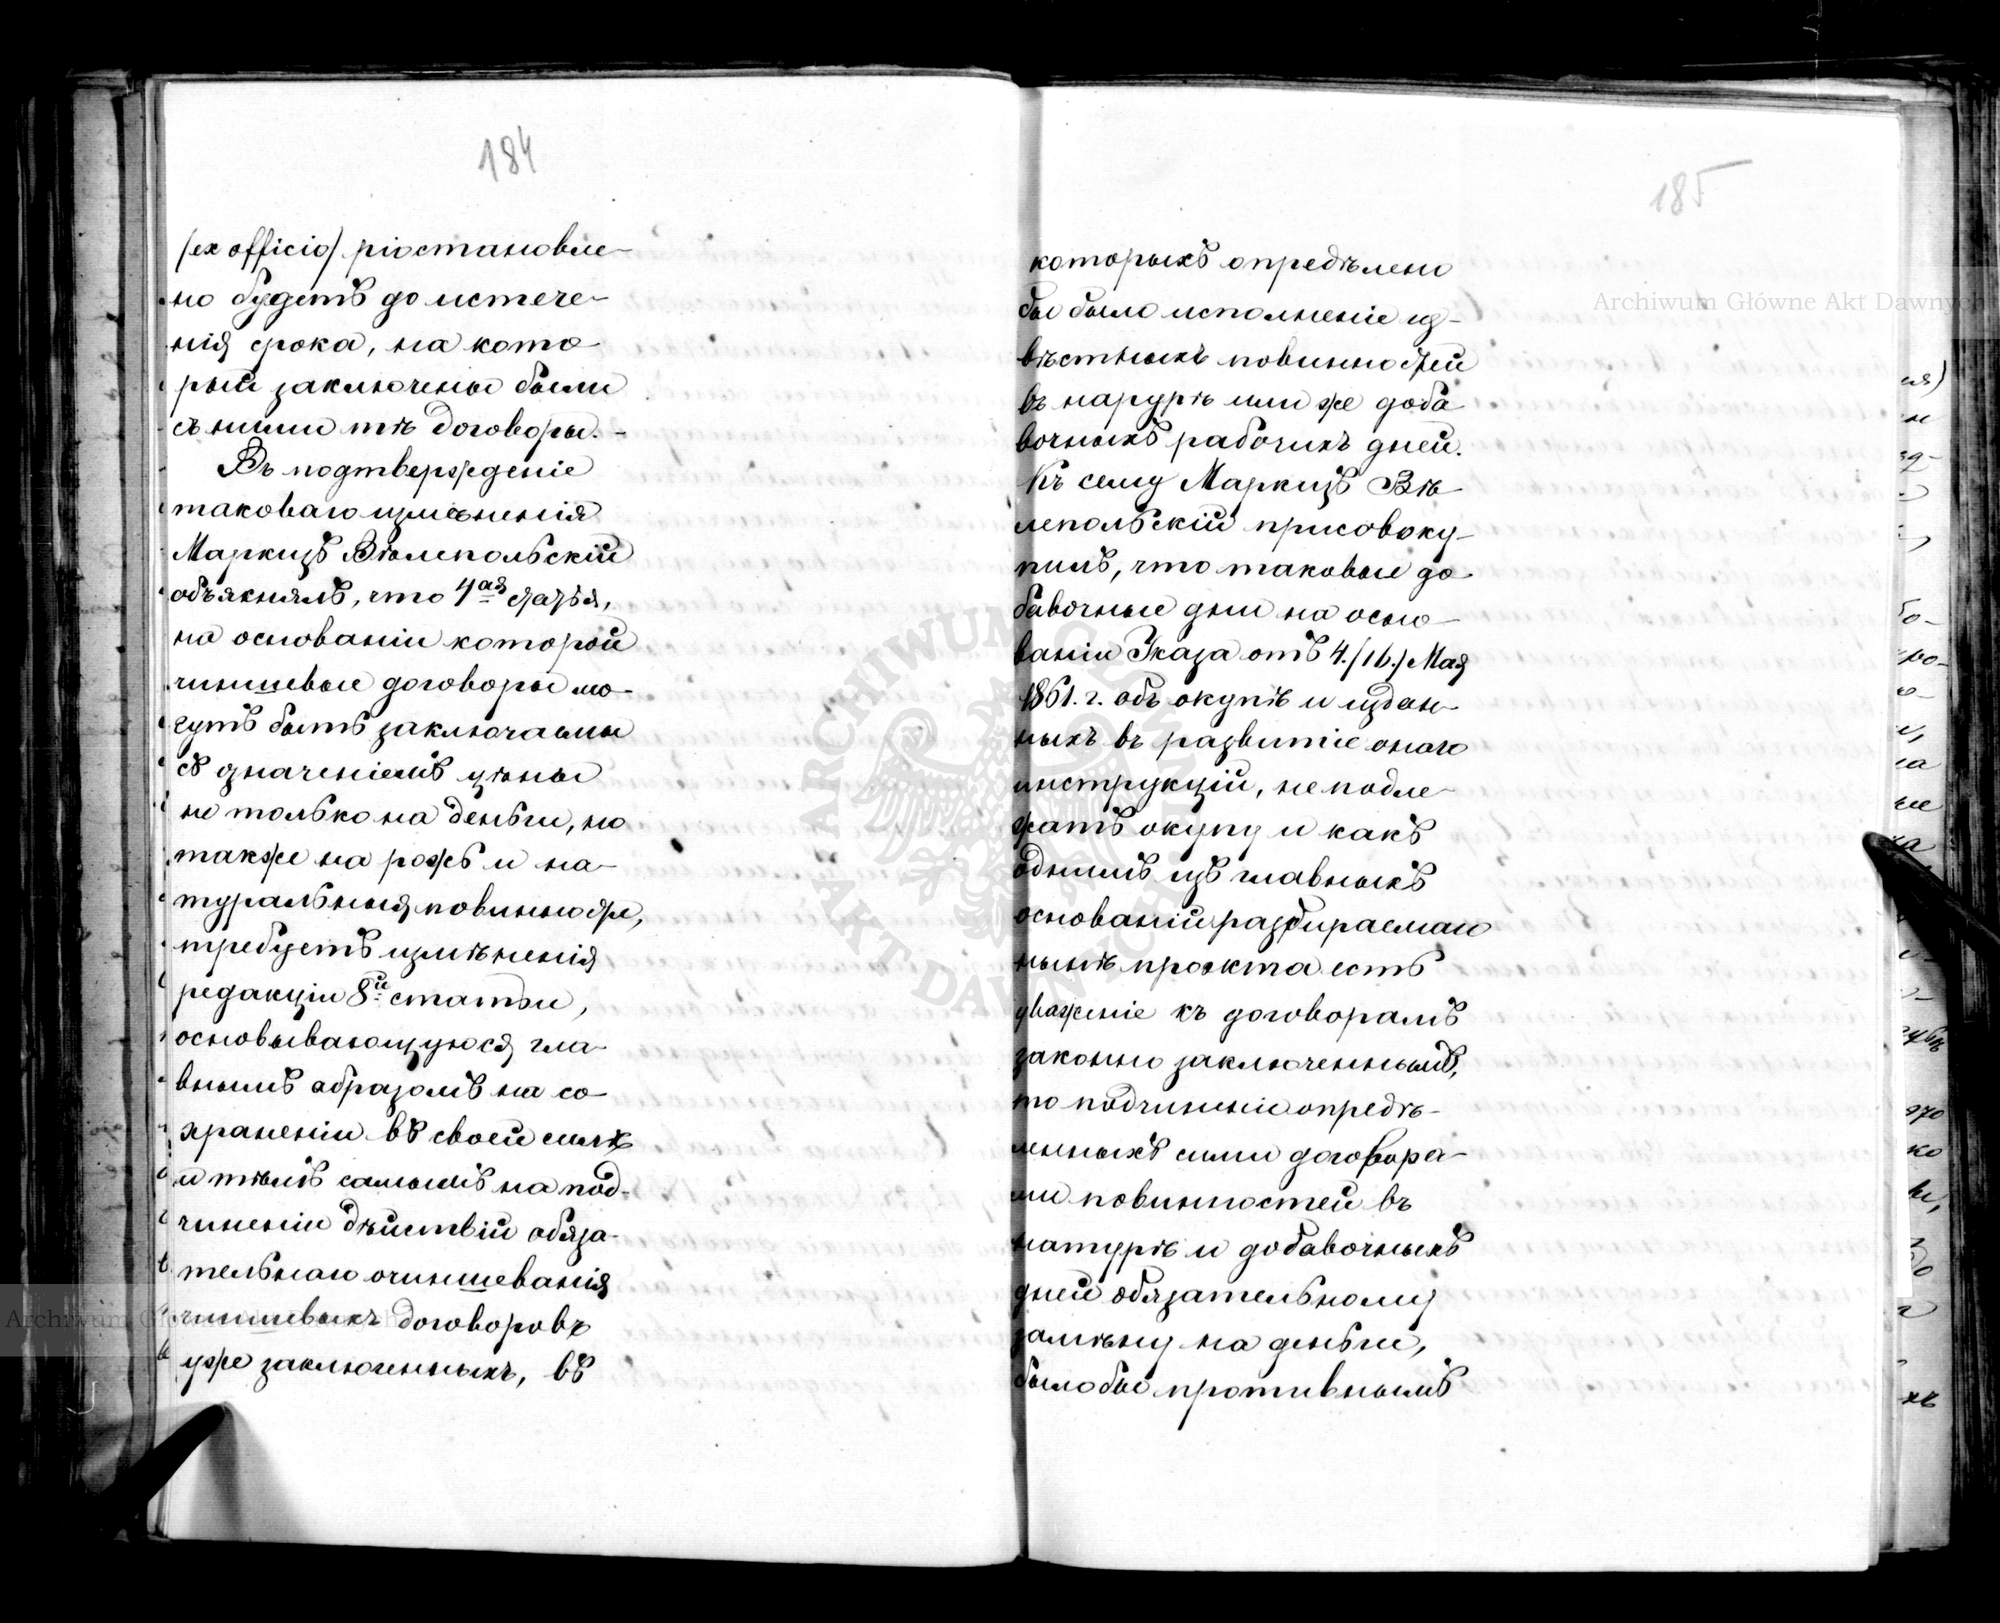 184
/ex officio/ piостановле-
но будетъ до истече-
нія срока, на кото-
рый заключены были
съ ними тѣ договоры. -
Въ подтвержденіе
таковаго измѣненія
Маркизъ Вѣлепольскій
объяснялъ, что 4ая статья,
на основаніи которой
чиншевые договоры мо-
гутъ быть заключаемы
съ означеніемъ цѣны
не только на деньги, но
также на рожь и на-
туральныя повинности,
требуетъ измѣненія
редакціи 8й статьи,
основывающуюся гла-
внымъ образомъ на со-
храненіи въ своей силѣ
и тѣмъ самымъ на под-
чиненіи дѣйствій обяза-
тельнаго очиншеванія
чиншевыхъ договоровъ
уже заключенныхъ, въ
185
которыхъ опредѣлено
бы было исполненіе из-
вѣстныхъ повинностей
въ натурѣ или же доба
вочныхъ рабочихъ дней.
Къ сему Маркизъ Вѣ-
лепольскій присовоку-
пилъ, что таковые до-
бавочные дни на осно-
ваніи Указа отъ 4./16./ Мая
1861. г. объ окупѣ и издан-
ныхъ въ развитіе онаго
инструкцій, не подле-
жатъ окупу и какъ
однимъ изъ главныхъ
основаній разбираемаго
нынѣ проэкта есть
уваженіе къ договорамъ
законно заключеннымъ,
то подчиненіе опредѣ-
ленныхъ сими договора-
ми повинностей въ
натурѣ и добавочныхъ
дней обязательному
замѣну на деньги,
было бы противнымъ
Archiwum Główne Akt Dawnych
ARCHIWUM GŁÓWNE AKT DAWNYCH